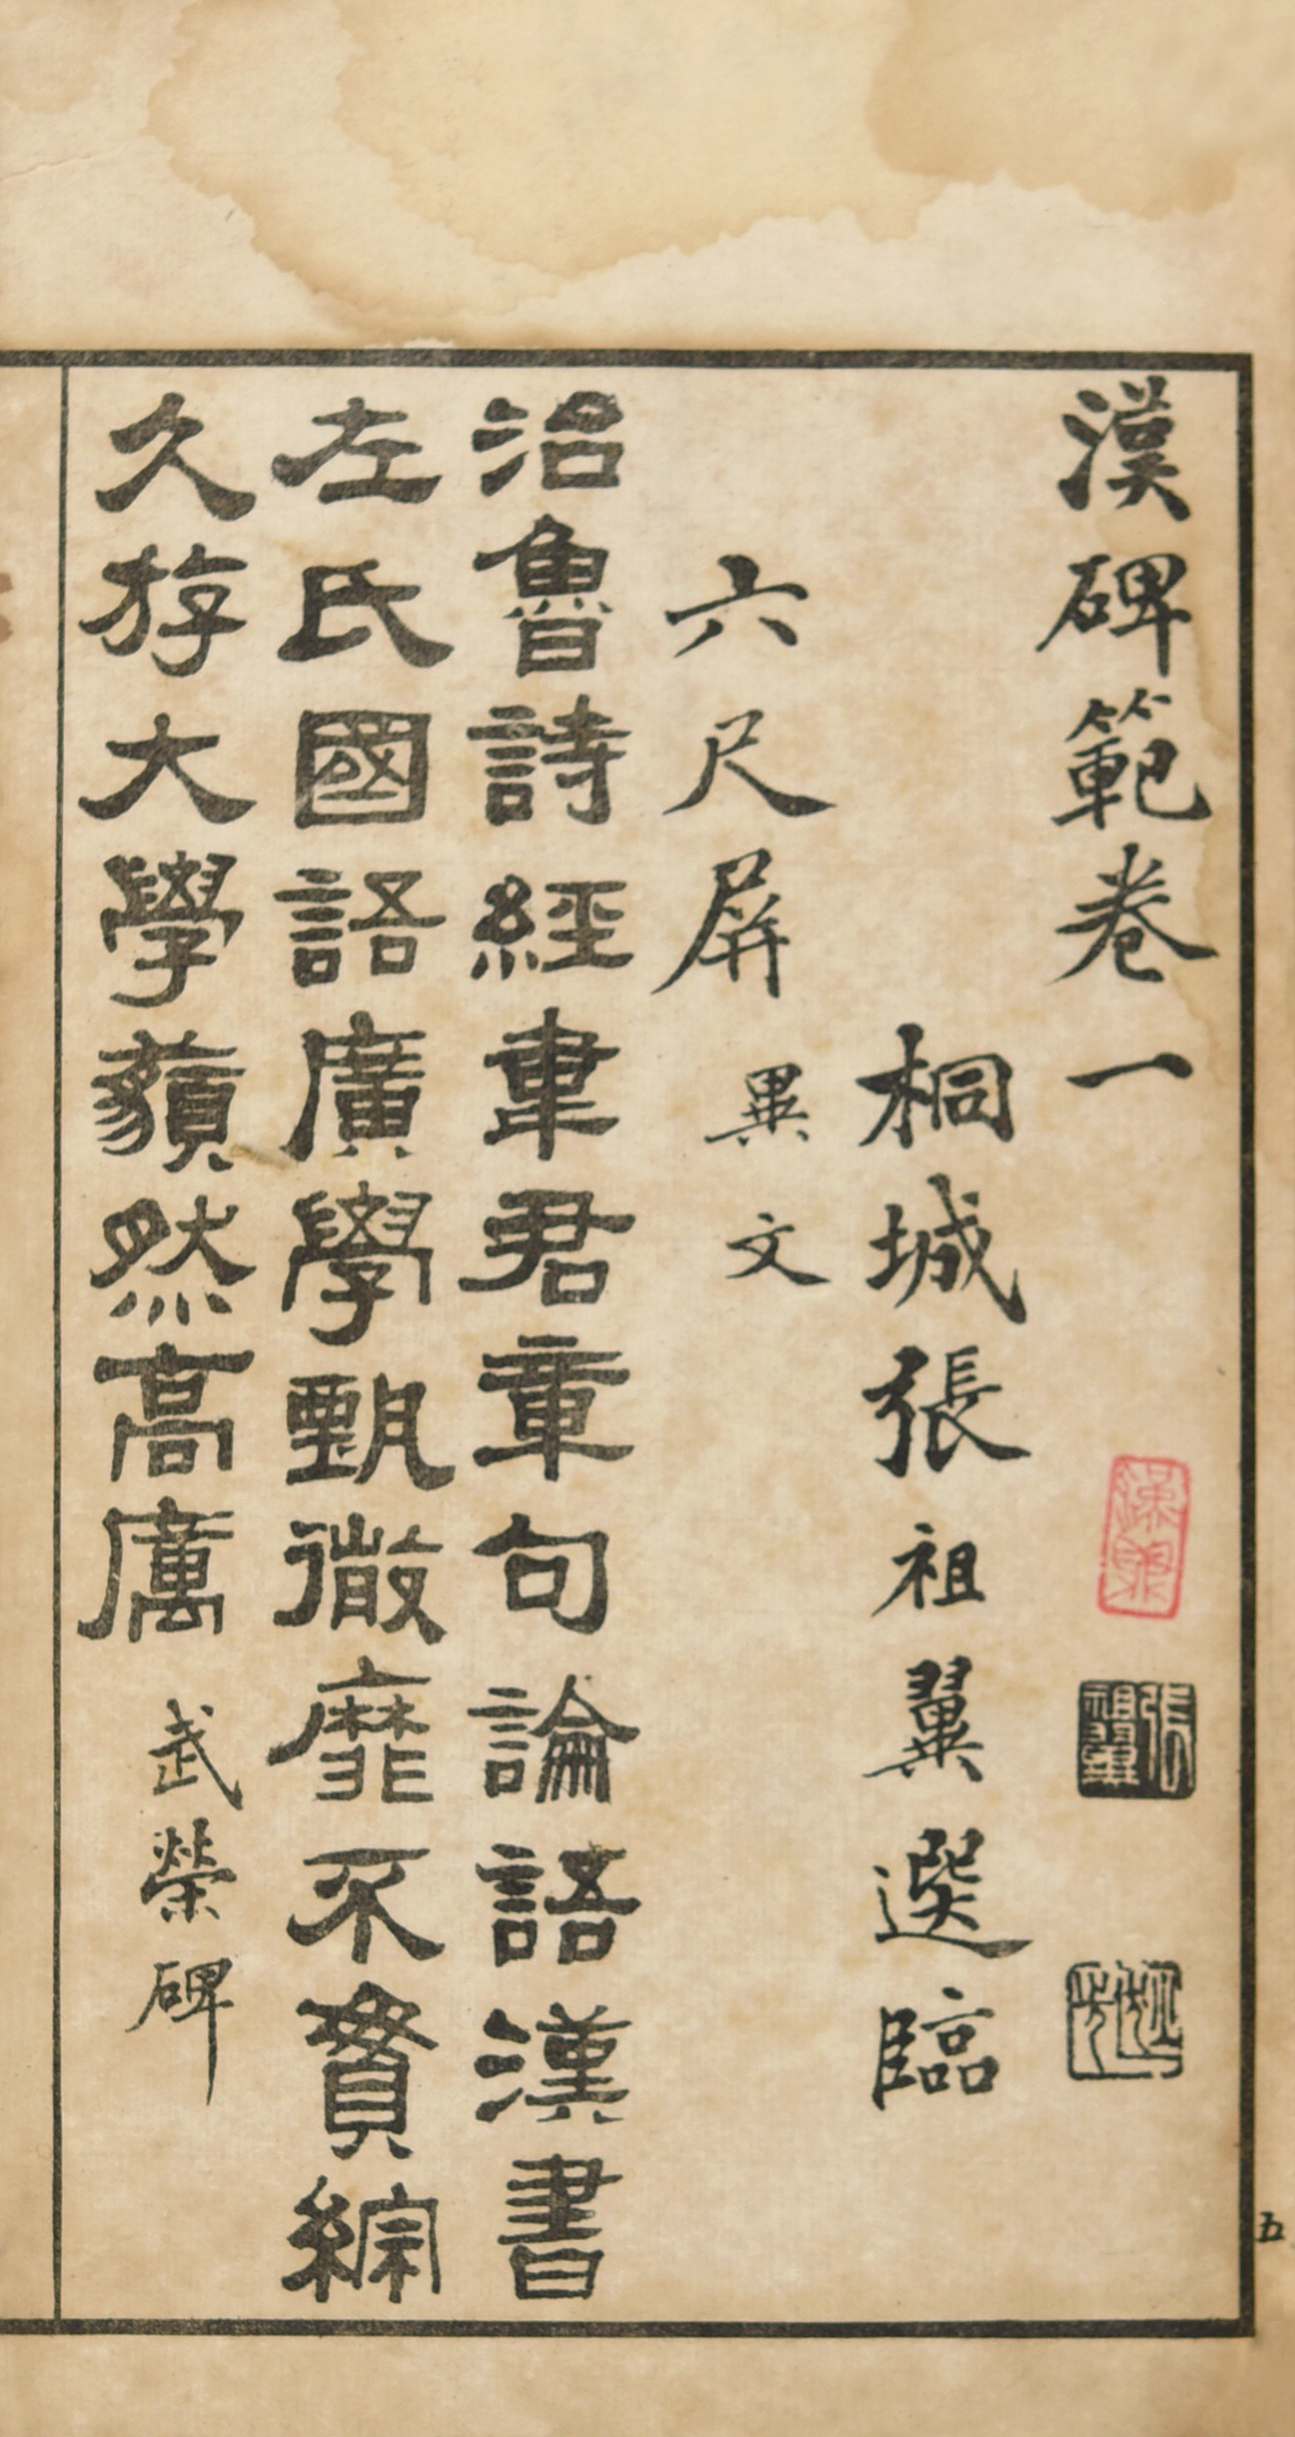 漢碑範卷一
桐城張祖翼選臨
六尺屏 異文
治魯詩經韋君章句論語漢書
左氏國語廣學甄微靡不貫綜
久斿大學藐然高厲 武榮碑
張祖翼
五